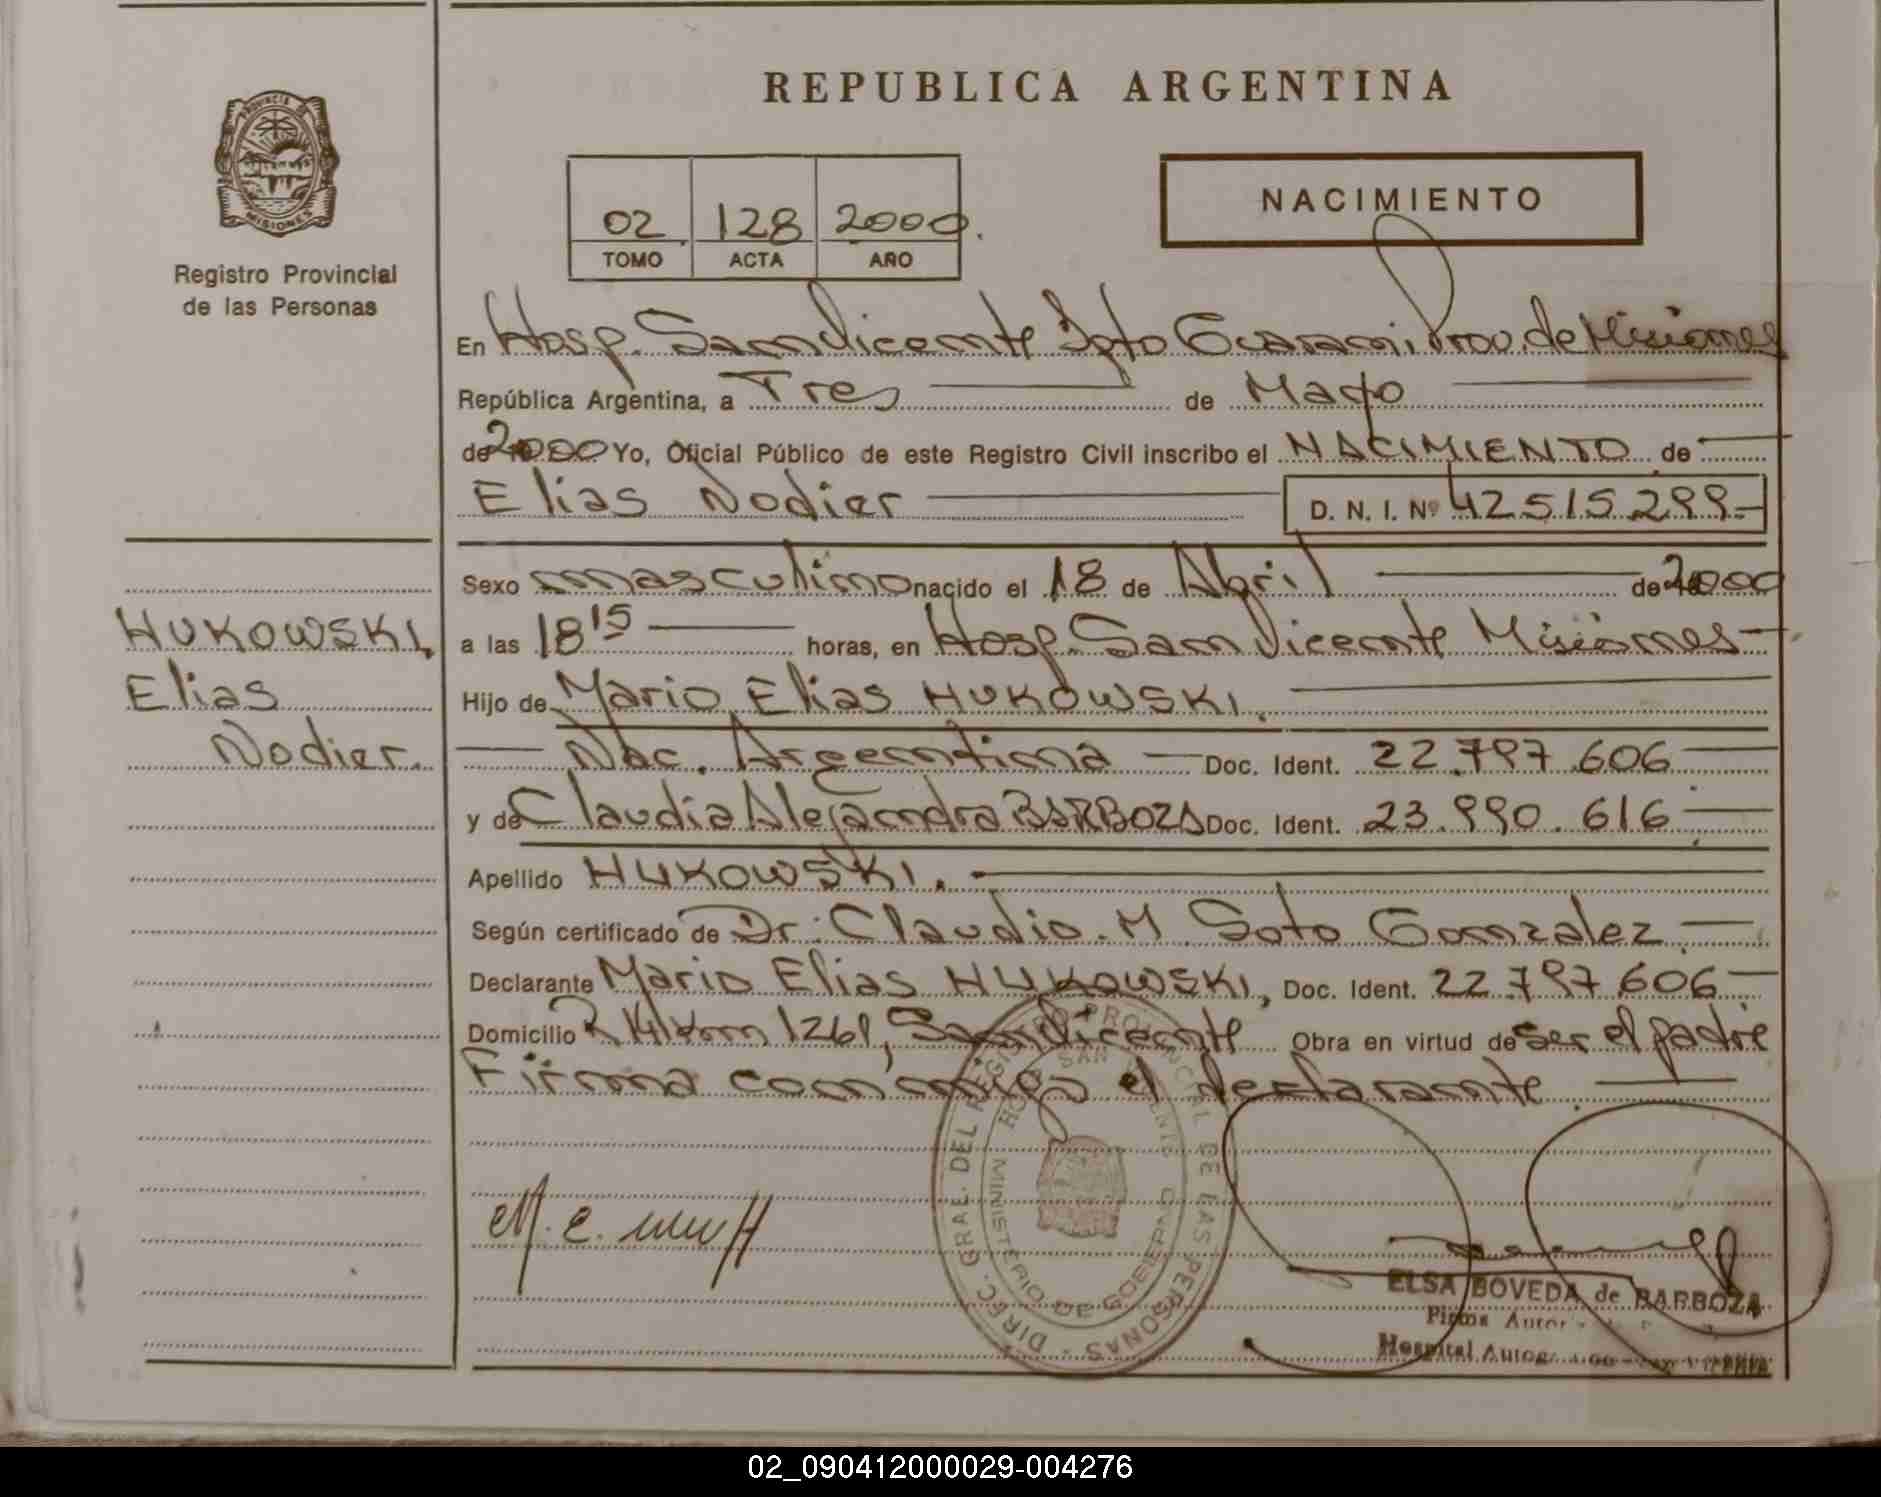 REPUBLICA ARGENTINA
PROVINCIA DE
MISIONES
Registro Provincial
de las Personas
02 128 2000.
TOMO ACTA AÑO
NACIMIENTO
En Hosp. San Vicente Dpto Guarani, Prov. de Misiones
República Argentina, a Tres de Mayo
de 2000 Yo, Oficial Público de este Registro Civil inscribo el NACIMIENTO de
Elias Nodier D. N. I. Nº 42.515.299-
Sexo masculino nacido el 18 de Abril de 2000
a las 18 15 horas, en Hosp. San Vicente Misiones
Hijo de Mario Elias HUKOWSKI.
Nac. Argentina Doc. Ident. 22.797.606
y de Claudia Alejandra BARBOZA Doc. Ident. 23.990.616
Apellido HUKOWSKI.
Según certificado de Dr. Claudio. M Soto Gonzalez
Declarante Mario Elias HUKOWSKI, Doc. Ident. 22.797.606
Domicilio R 14 km 1261, San Vicente Obra en virtud de ser el padre
Firma conmigo el declarante.
HUKOWSKI,
Elias
Nodier.
DIREC. GRAL. DEL REGISTRO PROVINCIAL DE LAS PERSONAS
HOSP. SAN VICENTE
MINISTERIO DE GOBIERNO
ELSA BOVEDA de BARBOZA
Firma
Hospital
02_090412000029-004276